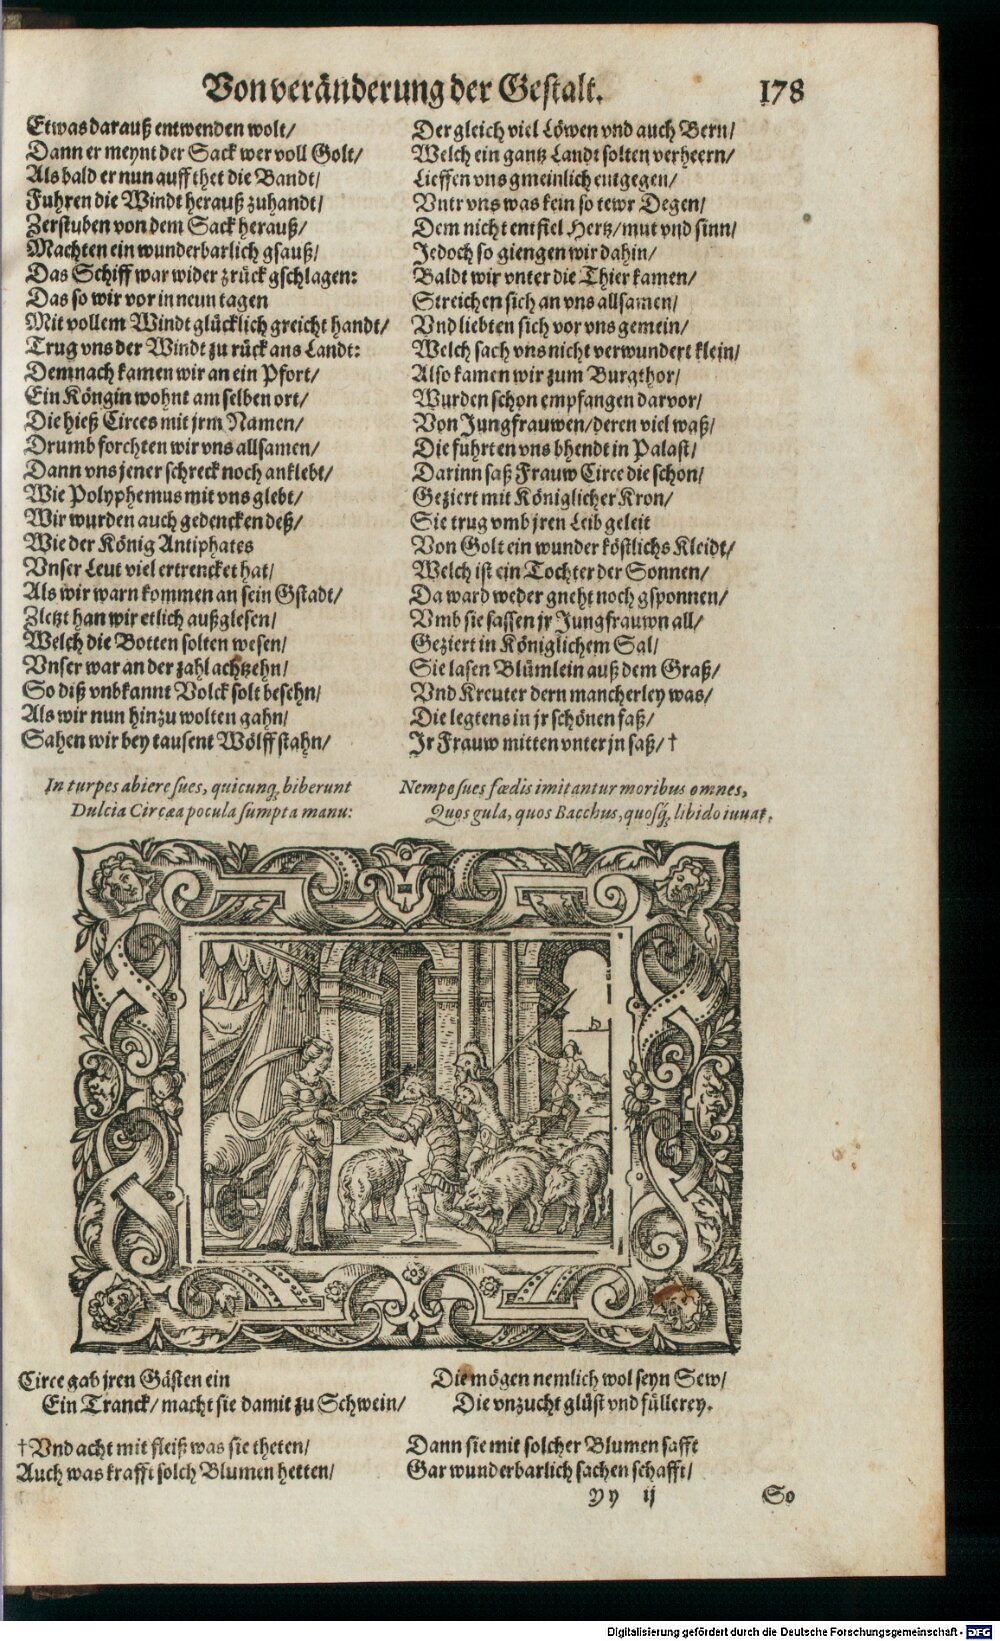 Von veränderung der Gestalt. 178
Etwas darauß entwenden wolt/
Dann er meynt der Sack wer voll Golt/
Als bald er nun auff thet die Bandt/
Fuhren die Windt herauß zuhandt/
Zerstuben von dem Sack herauß/
Machten ein wunderbarlich gsauß/
Das Schiff war wider zrück gschlagen:
Das so wir vor in neun tagen
Mit vollem Windt glücklich greicht handt/
Trug vns der Windt zu rück ans Landt:
Demnach kamen wir an ein Pfort/
Ein Köngin wohnt am selben ort/
Die hieß Circes mit jrm Namen/
Drumb forchten wir vns allsamen/
Dann vns jener schreck noch anklebt/
Wie Polyphemus mit vns glebt/
Wir wurden auch gedencken deß/
Wie der König Antiphates
Vnser Leut viel ertrencket hat/
Als wir warn kommen an sein Gstadt/
Zletzt han wir etlich außglesen/
Welch die Botten solten wesen/
Vnser war an der zahl achtzehn/
So diß vnbkannt Volck solt besehn/
Als wir nun hinzu wolten gahn/
Sahen wir bey tausent Wölff stahn/
Der gleich viel Löwen vnd auch Bern/
Welch ein gantz Landt solten verheern/
Lieffen vns gmeinlich entgegen/
Vntr vns was kein so tewr Degen/
Dem nicht entfiel Hertz/mut vnd sinn/
Jedoch so giengen wir dahin/
Baldt wir vnter die Thier kamen/
Streichen sich an vns allsamen/
Vnd liebten sich vor vns gemein/
Welch sach vns nicht verwundert klein/
Also kamen wir zum Burgthor/
Wurden schon empfangen darvor/
Von Jungfrauwen/deren viel waß/
Die fuhrten vns bhendt in Palast/
Darinn saß Frauw Circe die schon/
Geziert mit Königlicher Kron/
Sie trug vmb jren Leib geleit
Von Golt ein wunder köstlichs Kleidt/
Welch ist ein Tochter der Sonnen/
Da ward weder gneht noch gsponnen/
Vmb sie sassen jr Jungfrauwn all/
Geziert in Königlichem Sal/
Sie lasen Blümlein auß dem Graß/
Vnd Kreuter dern mancherley was/
Die legtens in jr schönen faß/
Jr Frauw mitten vnter jn saß/ †
In turpes abiere sues, quicunq; biberunt
Dulcia Circæa pocula sumpta manu:
Nempe sues fœdis imitantur moribus omnes,
Quos gula, quos Bacchus, quosq́; libido iuuat.
Circe gab jren Gästen ein
Ein Tranck/ macht sie damit zu Schwein/
Die mögen nemlich wol seyn Sew/
Die vnzucht glüst vnd füllerey.
† Vnd acht mit fleiß was sie theten/
Auch was krafft solch Blumen hetten/
Dann sie mit solcher Blumen safft
Gar wunderbarlich sachen schafft/
Yy ij So
Digitalisierung gefördert durch die Deutsche Forschungsgemeinschaft - DFG